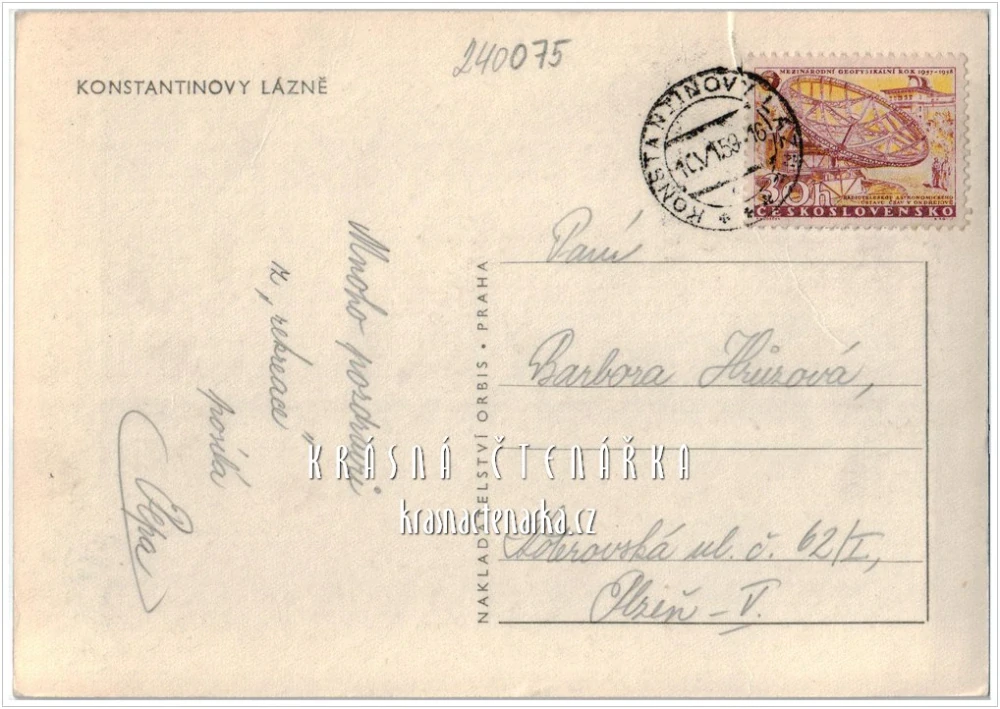 240075
KONSTANTINOVY LÁZNĚ
KONSTANTINOVY LÁZNĚ
MEZINÁRODNÍ GEOFYSIKÁLNÍ ROK 1957-1958
30h
RADIOTELESKOP ASTRONOMICKÉHO
ÚSTAVU ČSAV V ONDŘEJOVĚ
ČESKOSLOVENSKO
Mnoho pozdravů
z „rekreace"
posílá
NAKLADATELSTVÍ ORBIS • PRAHA
Paní
Barbora Hrůzová,
ul. č. 62/I,
Plzeň - V.
KRÁSNÁ ČTENÁŘKA
krasnactenarka.cz